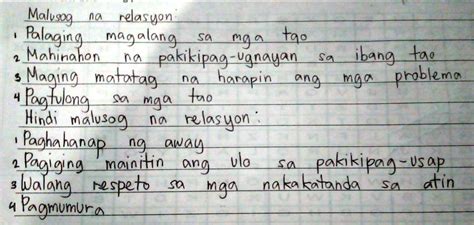 Malusog na relasyon:
1 Palaging magalang sa mga tao
2 Mahinahon na pakikipag-ugnayan sa ibang tao
3 Maging matatag na harapin ang mga problema
4 Pagtulong sa mga tao
Hindi malusog na relasyon:
1 Paghahanap ng away
2 Pagiging mainitin ang ulo sa pakikipag-usap
3 Walang respeto sa mga nakakatanda sa atin
4 Pagmumura